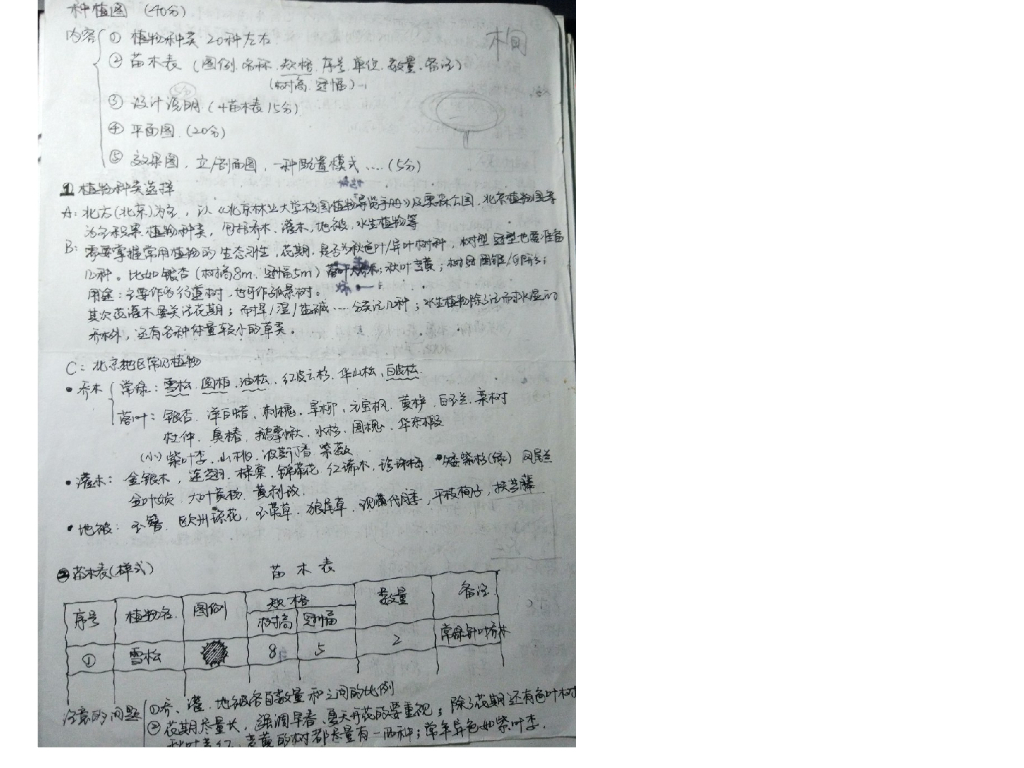 种植图 (40分)
内容 ① 植物种类 20种左右
② 苗木表 (图例.名称.规格.序号.单位.数量.备注)
(树高.冠幅)
③ 设计说明 (+苗木表15分)
④ 平面图 (20分)
⑤ 效果图.立/剖面图.一种配置模式....(5分)
1. 植物种类选择
A: 北方(北京)为主,以《北京林业大学校园植物导览手册》及奥森公园.北京植物园等
植物种类,包括乔木.灌木.地被.水生植物等
B: 需要掌握常用植物的生态习性,花期.是否为秋色叶/异叶树种.树型冠型也要准备
几种。比如银杏 (树高8m.冠幅5m) 秋叶金黄;树冠圆锥
用途:主要作为行道树,也可作孤景树。
其次要灌木要关注花期;耐旱/湿/盐碱....分类记几种;水生植物除了记耐水湿的
乔木外,还有各种体量较小的草类。
C: 北京地区常见植物
• 乔木 常绿:雪松.圆柏.油松.红皮云杉.华山松.白皮松
落叶:银杏.洋白蜡.刺槐.旱柳.元宝枫.黄栌.白玉兰.栾树
杜仲.臭椿.鹅掌楸.水杉.国槐.
(小) 紫叶李.山桃.波斯丁香.紫薇
• 灌木:金银木,连翘.棣棠.锦带花.红瑞木.珍珠梅. 凤尾兰
大叶黄杨.黄刺玫.
• 地被:玉簪.狼尾草.平枝栒子.扶芳藤
2. 苗木表(样式) 苗木表
序号 植物名 图例 规格 数量 备注
树高 冠幅
① 雪松 8 5 2 常绿针叶乔木
注意的问题 ①乔.灌.地被各自数量和之间的比例
②花期尽量长,强调早春.夏天开花的要重视;除了花期还有色叶树
黄的树都尽量有一两种;常年异色如紫叶李.